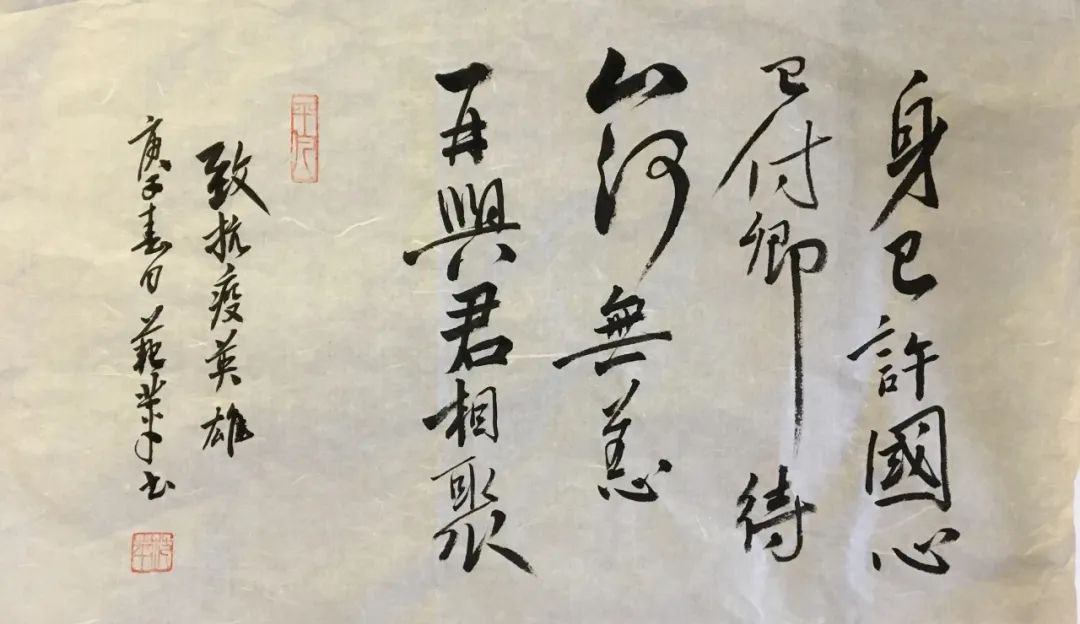 身已許國心
已付卿待
山河無恙
再與君相聚
致抗疫英雄
庚子春日 書